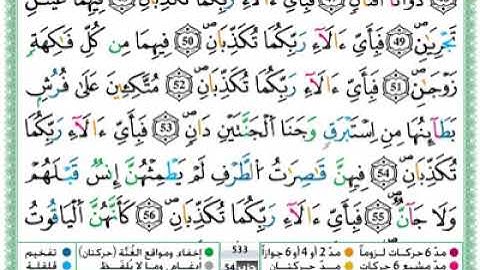 ذَوَاتَآ أَفْنَانٍ ۝ فَبِأَيِّ ءَالَآءِ رَبِّكُمَا تُكَذِّبَانِ ۝ فِيهِمَا عَيْنَانِ
تَجْرِيَانِ ۝ 49 فَبِأَيِّ ءَالَآءِ رَبِّكُمَا تُكَذِّبَانِ ۝ 50 فِيهِمَا مِن كُلِّ فَٰكِهَةٍ
زَوْجَانِ ۝ 51 فَبِأَيِّ ءَالَآءِ رَبِّكُمَا تُكَذِّبَانِ ۝ 52 مُتَّكِـِٔينَ عَلَىٰ فُرُشٍۭ
بَطَآئِنُهَا مِنْ إِسْتَبْرَقٍ وَجَنَا الْجَنَّتَيْنِ دَانٍ ۝ 53 فَبِأَيِّ ءَالَآءِ رَبِّكُمَا
تُكَذِّبَانِ ۝ 54 فِيهِنَّ قَٰصِرَٰتُ الطَّرْفِ لَمْ يَطْمِثْهُنَّ إِنسٌ قَبْلَهُمْ
وَلَا جَآنٌّ ۝ 55 فَبِأَيِّ ءَالَآءِ رَبِّكُمَا تُكَذِّبَانِ ۝ 56 كَأَنَّهُنَّ الْيَاقُوتُ
مدّ 6 حركات لزوماً مدّ 2 أو 4 أو 6 جوازاً 533 إخفاء، ومواقع الغُنَّة (حركتان) تفخيم
مدّ مشبع 6 حركات مدّ حركتان 54 إدغام، وما لا يُلفظ قلقلة